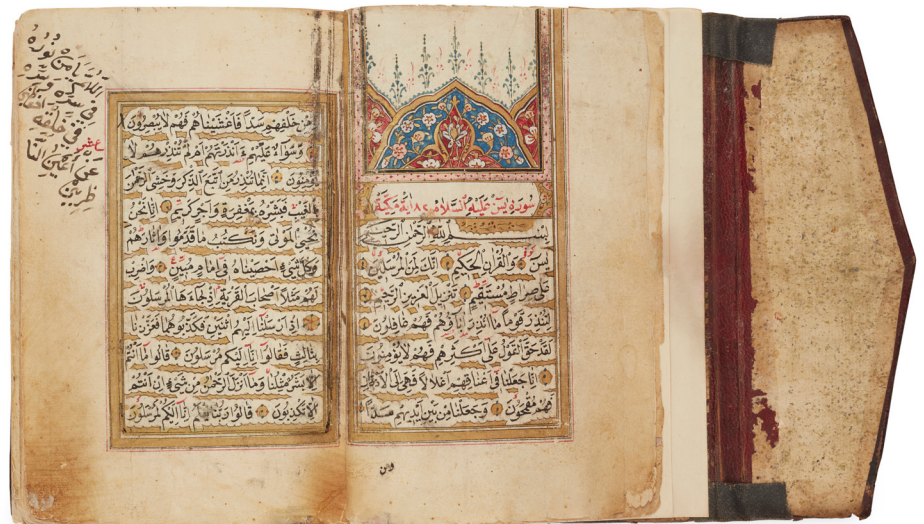 سورة يس عليه السلام ٨٢ اية مكية
بسم الله الرحمن الرحيم
يس وَالْقُرْاٰنِ الْحَكِيمِ اِنَّكَ لَمِنَ الْمُرْسَلِينَ
عَلٰى صِرَاطٍ مُسْتَقِيمٍ تَنْزِيلَ الْعَزِيزِ الرَّحِيمِ
لِتُنْذِرَ قَوْمًا مَا اُنْذِرَ اٰبَاؤُهُمْ فَهُمْ غَافِلُونَ
لَقَدْ حَقَّ الْقَوْلُ عَلٰى اَكْثَرِهِمْ فَهُمْ لَا يُؤْمِنُونَ
اِنَّا جَعَلْنَا فِى اَعْنَاقِهِمْ اَغْلَالًا فَهِىَ اِلَى الْاَذْقَانِ
فَهُمْ مُقْمَحُونَ وَجَعَلْنَا مِنْ بَيْنِ اَيْدِيهِمْ سَدًّا
ومن
وَمِنْ خَلْفِهِمْ سَدًّا فَاَغْشَيْنَاهُمْ فَهُمْ لَا يُبْصِرُونَ
وَسَوَاءٌ عَلَيْهِمْ ءَاَنْذَرْتَهُمْ اَمْ لَمْ تُنْذِرْهُمْ لَا
يُؤْمِنُونَ اِنَّمَا تُنْذِرُ مَنِ اتَّبَعَ الذِّكْرَ وَخَشِىَ الرَّحْمٰنَ
بِالْغَيْبِ فَبَشِّرْهُ بِمَغْفِرَةٍ وَاَجْرٍ كَرِيمٍ اِنَّا نَحْنُ
نُحْيِى الْمَوْتٰى وَنَكْتُبُ مَا قَدَّمُوا وَاٰثَارَهُمْ
وَكُلَّ شَىْءٍ اَحْصَيْنَاهُ فِى اِمَامٍ مُبِينٍ وَاضْرِبْ
لَهُمْ مَثَلًا اَصْحَابَ الْقَرْيَةِ اِذْ جَاءَهَا الْمُرْسَلُونَ
اِذْ اَرْسَلْنَا اِلَيْهِمُ اثْنَيْنِ فَكَذَّبُوهُمَا فَعَزَّزْنَا
بِثَالِثٍ فَقَالُوا اِنَّا اِلَيْكُمْ مُرْسَلُونَ قَالُوا مَا اَنْتُمْ
اِلَّا بَشَرٌ مِثْلُنَا وَمَا اَنْزَلَ الرَّحْمٰنُ مِنْ شَىْءٍ اِنْ اَنْتُمْ
اِلَّا تَكْذِبُونَ قَالُوا رَبُّنَا يَعْلَمُ اِنَّا اِلَيْكُمْ لَمُرْسَلُونَ
من نوره
عشر